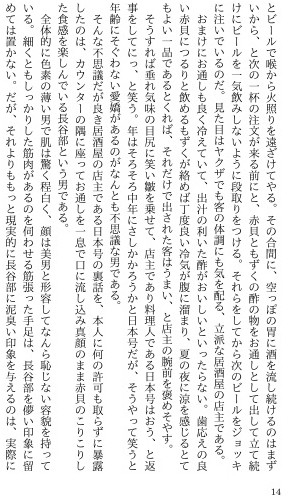 とビールで喉から火照りを遠ざけてやる。その合間に、空っぽの胃に酒を流し続けるのはまず
いから、と次の一杯の注文が来る前にと、赤貝ともずくの酢の物をお通しとして出して立て続
けにビールを一気飲みしないように段取りをつける。それらをしてから次のビールをジョッキ
に注いでいるのだ。見た目はヤクザでも客の体調にも気を配る、立派な居酒屋の店主である。
おまけにお通しも良く冷えていて、出汁の利いた酢がおいしいといったらない。歯応えの良
い赤貝につるりと飲めるもずくが絡めば丁度良い冷気が腹に溜まり、夏の夜に涼を感じるとて
もよい一品であるとくれば、それだけで出された客はうまい、と店主の腕前を褒めそやす。
そうすれば垂れ気味の目尻に笑い皺を乗せて、店主であり料理人である日本号はおう、と返
事をしてにっ、と笑う。年はそろそろ中年にさしかかろうかと日本号だが、そうやって笑うと
年齢にそぐわない愛嬌があるのがなんとも不思議な男である。
そんな不思議だが良き居酒屋の店主である日本号の裏話を、本人に何の許可も取らずに暴露
したのは、カウンターの隅に座ってお通しを一息で口に流し込み真顔のまま赤貝のこりこりし
た食感を楽しんでいる長谷部という男である。
全体的に色素の薄い男で肌は驚く程白く、顔は美男と形容してなんら恥じない容貌を持って
いる。細くともしっかりした筋肉があるのを伺わせる筋張った手足は、長谷部を儚い印象に留
めては置かない。だが、それよりももっと現実的に長谷部に泥臭い印象を与えるのは、実際に
14